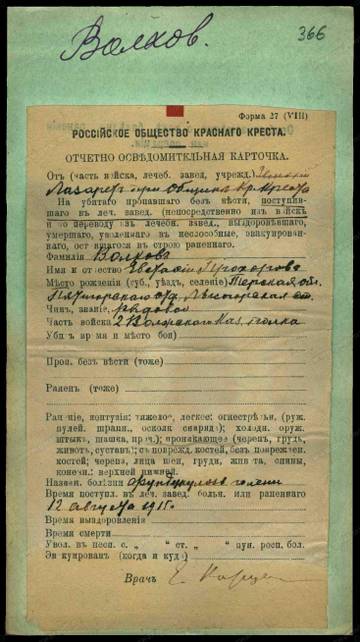 Волхов.
366
Форма 27 (VIII)
РОССІЙСКОЕ ОБЩЕСТВО КРАСНАГО КРЕСТА.
ОТЧЕТНО ОСВѢДОМИТЕЛЬНАЯ КАРТОЧКА.
Отъ (часть войска, лечеб. завед. учрежд.)
Лазаретъ при Общинѣ Кр. Креста
На убитаго пропавшаго безъ вѣсти, поступив-
шаго въ леч. завед. (непосредственно изъ войскъ
по переводу изъ лечебн. завед., выздоровѣвшаго,
умершаго, уволеннаго въ неспособные, эвакуирован-
наго, оставшагося въ строю раненаго.
Фамилія Волковъ
Имя и отчество Прохоровъ
Мѣсто рожденія (губ., уѣздъ, селеніе) Терская обл.
Пятигорскаго отд.
Чинъ, званіе рядовой
Часть войска 2 Волжскаго Каз. полка
Убитъ (время и мѣсто боя)
Проп. безъ вѣсти (тоже)
Раненъ (тоже)
Раненіе, контузія: тяжелое, легкое; огнестрѣльн. (руж.
пулей. шрапн., осколк. снаряда); холодн. оруж.
штыкъ, шашка, проч.); проникающее (черепъ, грудь,
животъ, суставъ; съ поврежд. костей, безъ поврежден.
костей; черепъ, лица шеи, груди, живота, спины,
конечн.: верхней нижней.
Назван. болѣзни фурункулезъ голени
Время поступл. въ леч. завед. больн. или раненаго
12 августа 1915 г.
Время выздоровленія
Время смерти
Увол. въ несп. с. „ “ ст. „ “ пун. росп. бол.
Эвакуированъ (когда и куда)
Врачъ